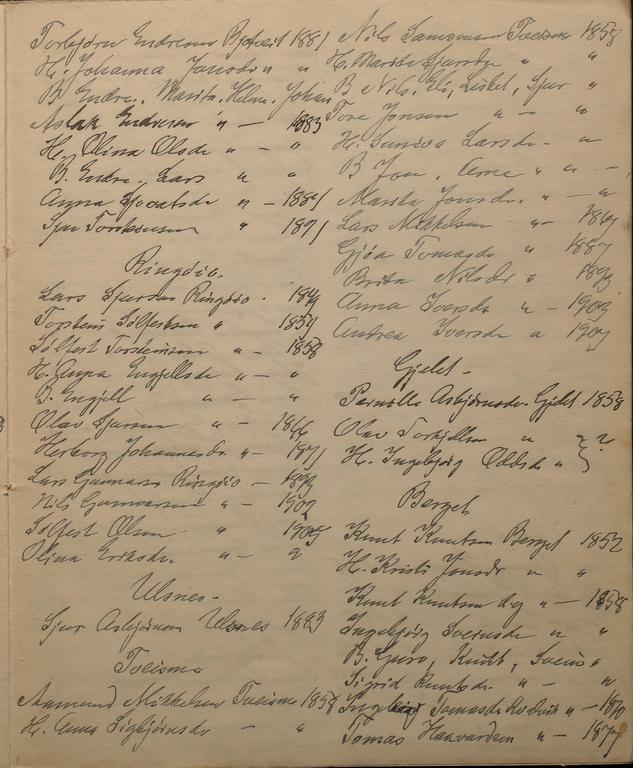 Torbjörn Endresen Bjotveit 1881
H. Johanna Jonsdr " "
B Endre, Marita, Helene, Johan
Aslak Endresen " — 1883
H. Olina Olsdr " — "
B. Endre, Lars " "
Anna Sjovatsdr " — 1884
Sjur Torsteinsen " 1891
Ringöio.
Lars Sjursen Ringöio . 1849
Torstein Solfestson " 1854
Solfest Torsteinson " — 1858
H. Anna Engjellsdr " — "
B. Engjell " — "
Olav Sjursen " — 1866
Herborg Johannesdr " — 1871
Lars Gunnarsen Ringöio — 1899
Nils Gunnarson " — 1902
Solfest Olsen " 1905
Olina Eriksdr. " — "
Ulsnes -
Sjur Asbjörnson Ulsnes 1883
Tveismo
Aamund Mikkelsen Tveismo 1858
H. Anna Sigbjörnsdr — "
Nils Samsonsen Tveismo 1858
H. Marita Sjursdr " "
B Nils, Eli, Lisbet, Sjur "
Tore Jonsen " — "
H. Suniva Larsdr. — "
B Jon, Arne " " —
Marita Jonsdr. " — "
Lars Mikkelsen " — 1867
Gjöa Tomasdr " 1887
Brita Nilsdr " 1893
Anna Iversdr " — 1903
Andrea Iversdr " 1907
Gjelt -
Pernille Asbjörnsdr. Gjelt 1858
Olav Torkjellsen " } ?
H. Ingebjörg Oddsdr " }
Berget
Knut Knutsen Berget 1852
H. Kristi Jonsdr " "
Knut Knutsen d.y " — 1858
Ingebjörg Sveinsdr " "
B. Guro, Knut, Svein "
Sigrid Knutsdr. " — "
Ingebörg Tomasdr " — 1870
Tomas Haavardsen " — 1877